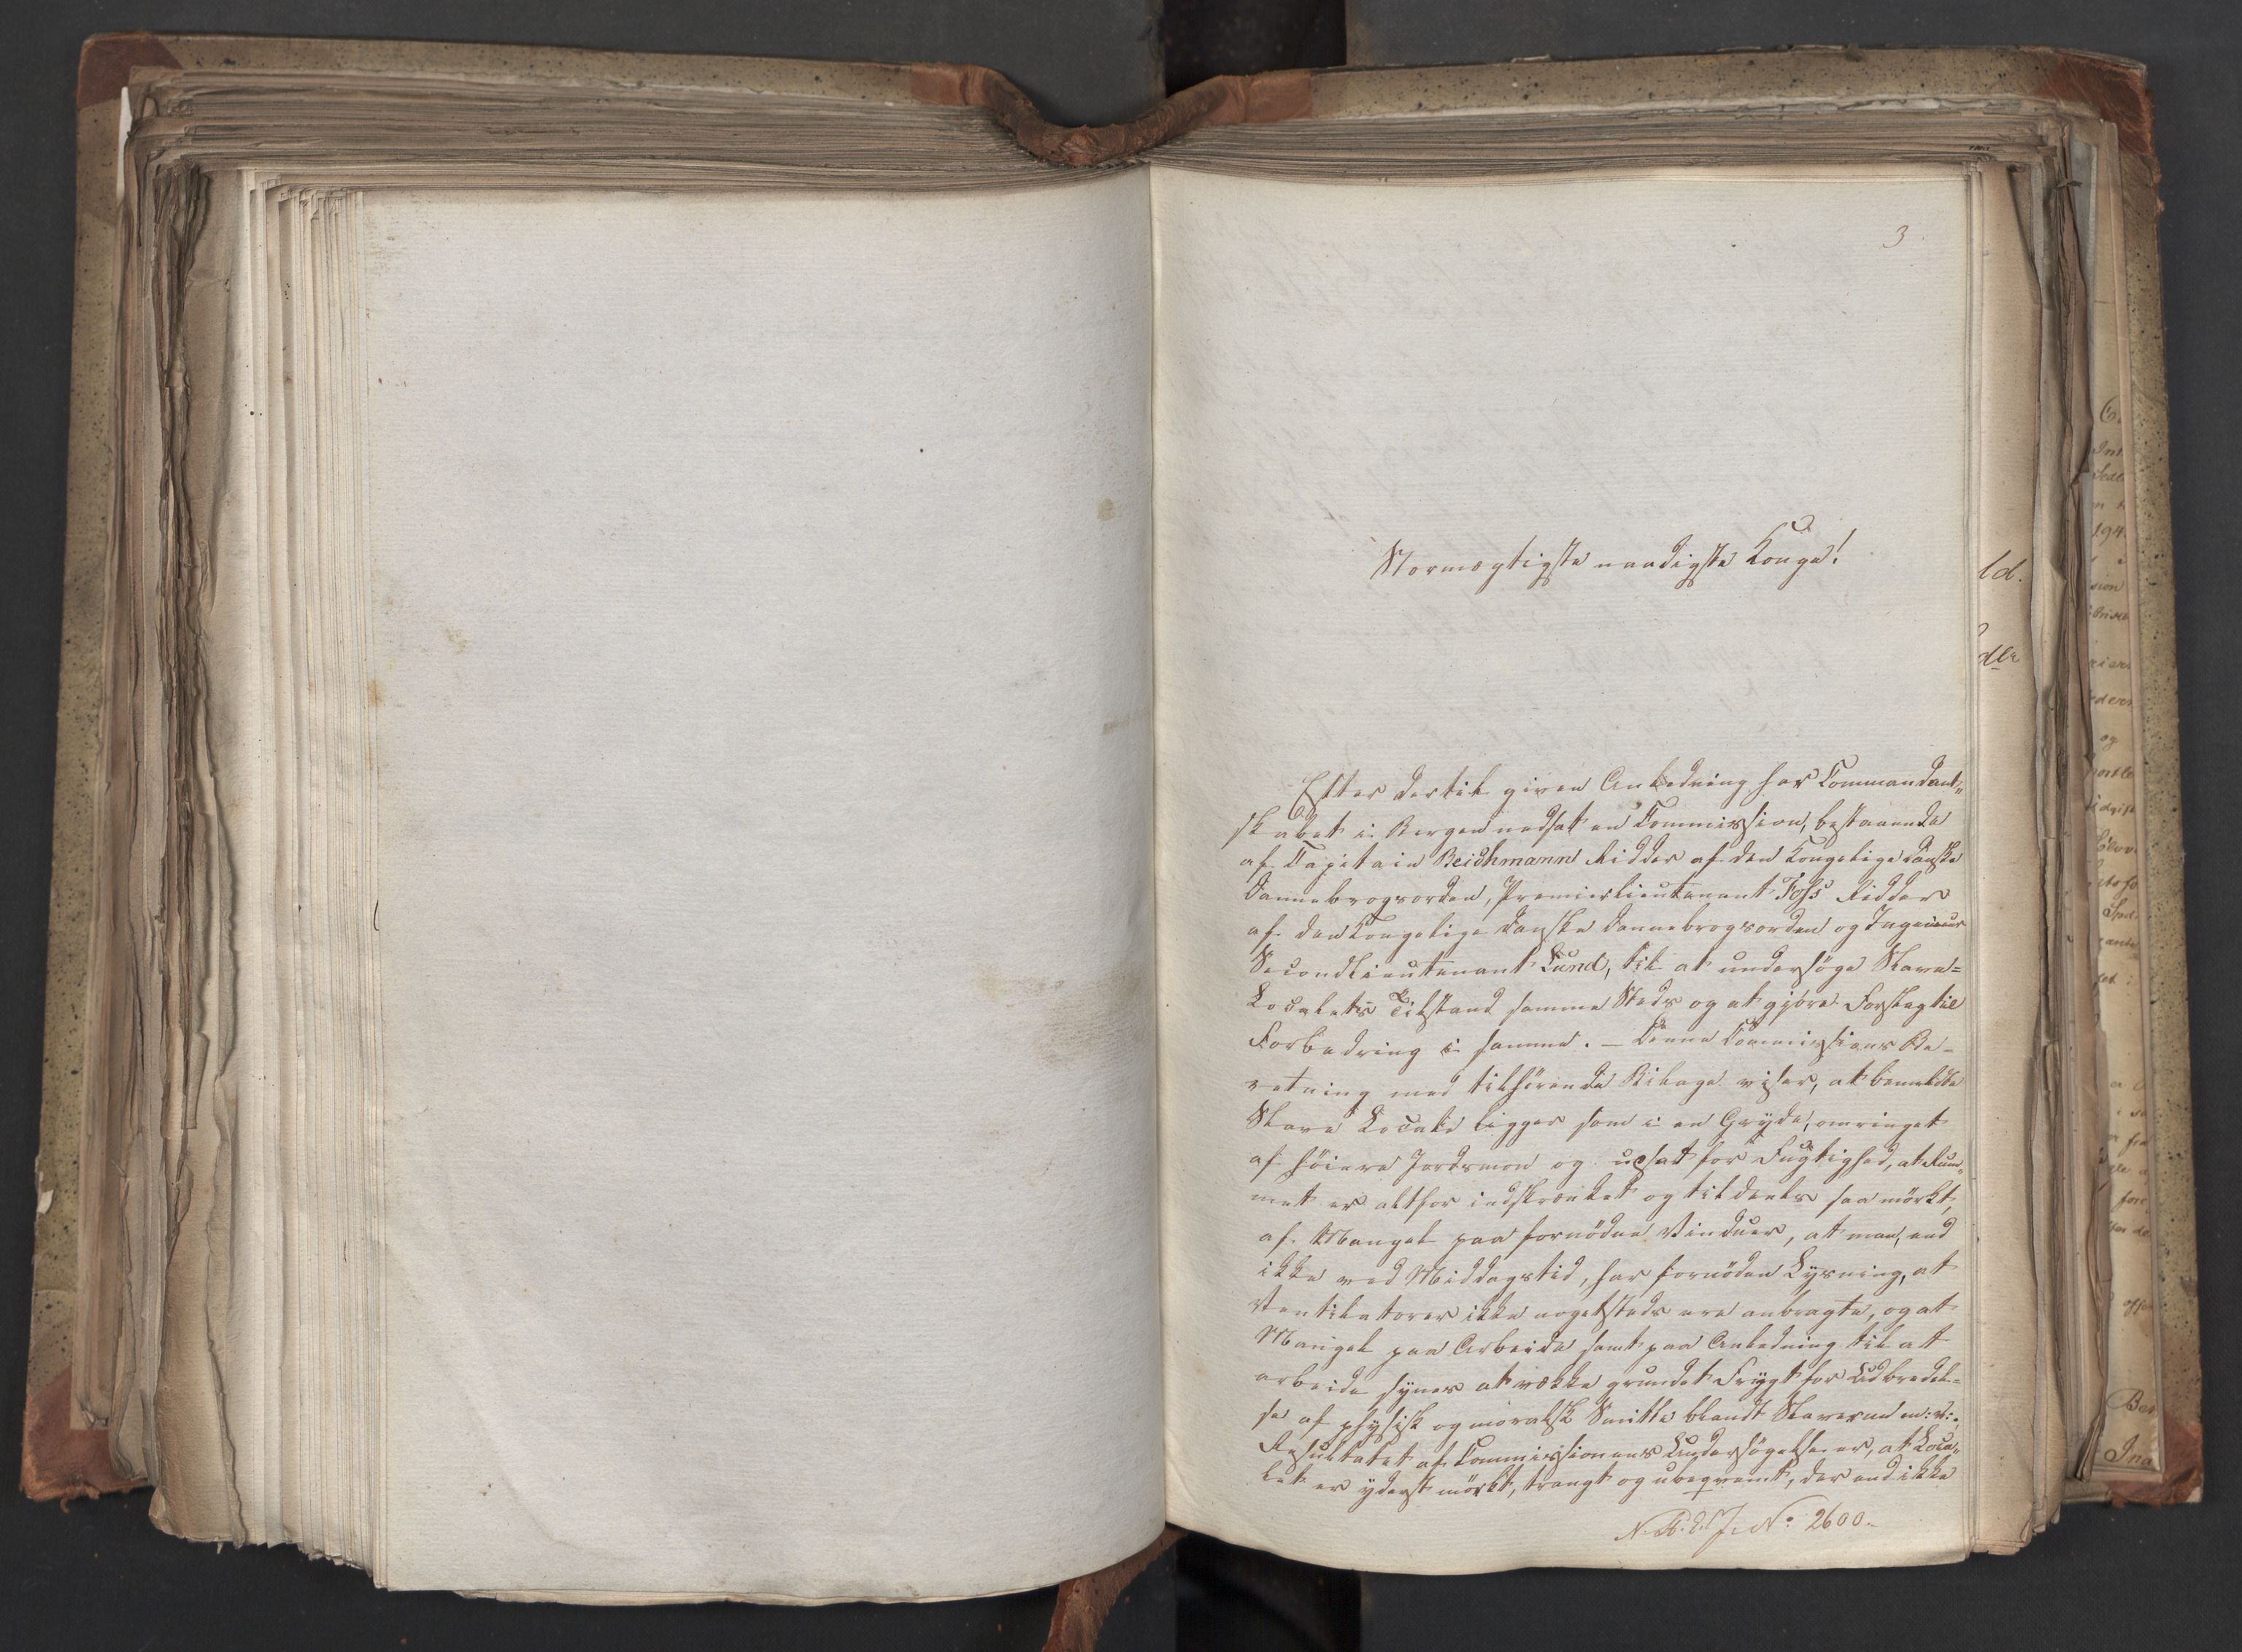 3
Stormægtigste naadigste Konge!
Efter dertil given Anledning har Commandant„
skabet i Bergen nedsat en Commission, bestaaende
af Capitain Beichmann Ridder af den Kongelige danske
Dannebrogsorden, Premierlieutenant Foss Ridder
af den Kongelige danske Dannebrogsorden og Ingenieur
Secondlieutenant Lund, til at undersöge Slave=
Localets Tilstand samme Steds og at gjöre Forslag til
Forbedring i samme. – Denne Commissions Be-
retning med tilhörende Bilage viser, at bemeldte
Slave Locale ligger som i en Gryde, omringet
af höiere Jordsmon og udsat for Fugtighed, at Rum„
met er altfor indskrænket og tildeels saa mörkt,
af Mangel paa fornödne Vinduer, at man, end
ikke ved Middagstid, har fornöden Lysning, at
Ventilatorer ikke nogetsteds ere anbragte, og at
Mangel paa Arbeide samt paa Anledning til at
arbeide synes at vække grundet Frygt for Udbredel-
se af physisk og moralsk Smitte blandt Slaverne m: v:.
Resultatet af Commissionens Undersögelse er, at Loca„
let er yderst mörkt, trangt og ubeqvemt, der end ikke
N. A: d: J. No. 2600.
ld.
dle
Co.
194
sion
og
Bes
Ina